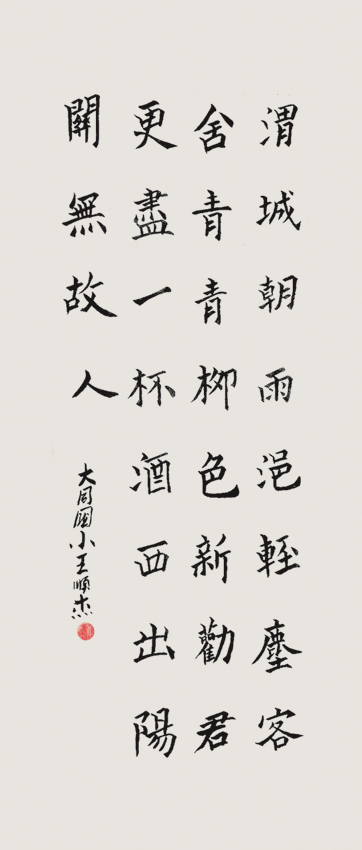 渭城朝雨浥輕塵客
舍青青柳色新勸君
更盡一杯酒西出陽
關無故人
大同國小王順杰